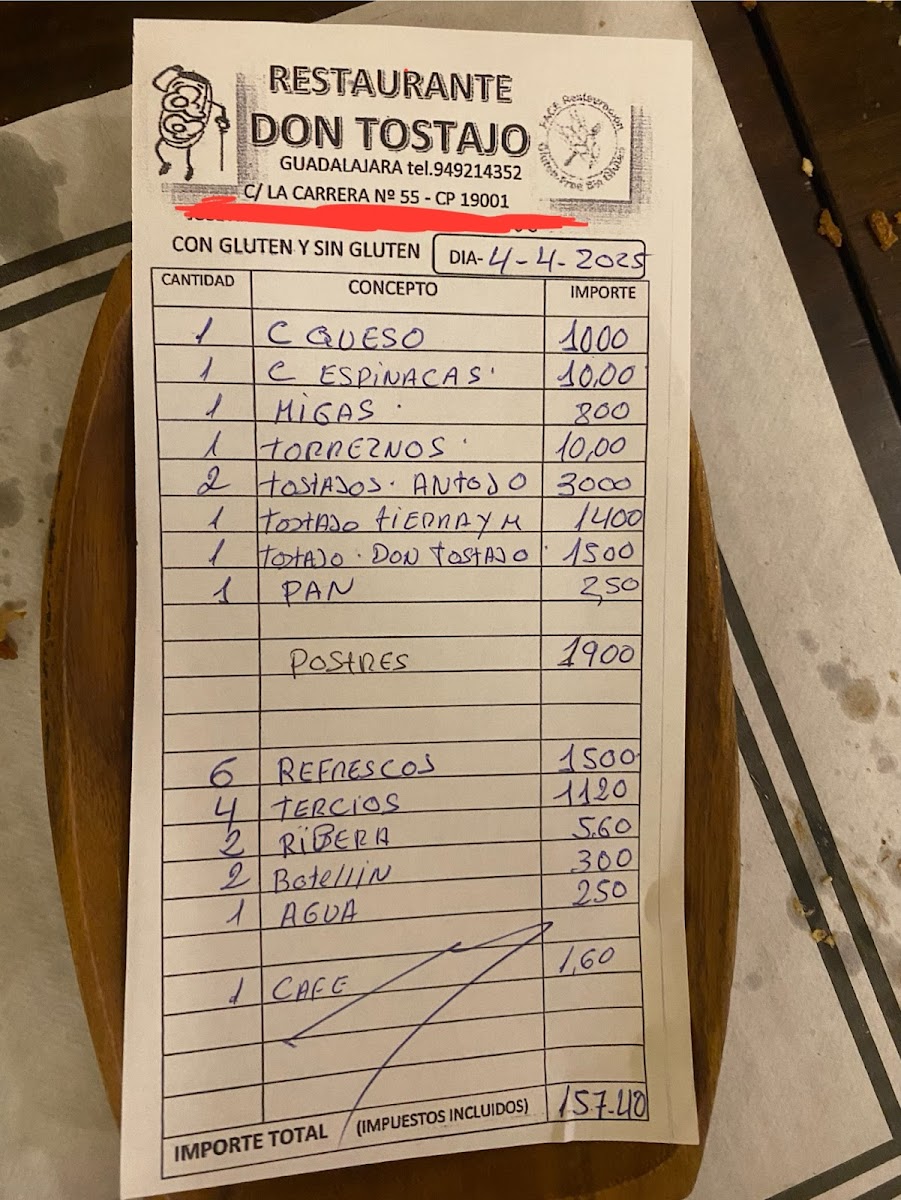 RESTAURANTE
DON TOSTAJO
GUADALAJARA tel.949214352
C/ LA CARRERA Nº 55 - CP 19001
FACE Restauración
Gluten-Free Sin Gluten
CON GLUTEN Y SIN GLUTEN DIA- 4-4-2025
CANTIDAD CONCEPTO IMPORTE
1 C QUESO 1000
1 C ESPINACAS 10,00
1 MIGAS 800
1 TORREZNOS 10,00
2 TOSTAJOS ANTOJO 3000
1 TOSTAJO TIERRA Y M 1400
1 TOSTAJO DON TOSTAJO 1500
1 PAN 2,50
POSTRES 1900
6 REFRESCOS 1500
4 TERCIOS 1120
2 RIBERA 5.60
2 Botellin 300
1 AGUA 250
1 CAFE 1,60
IMPORTE TOTAL (IMPUESTOS INCLUIDOS) 157.40